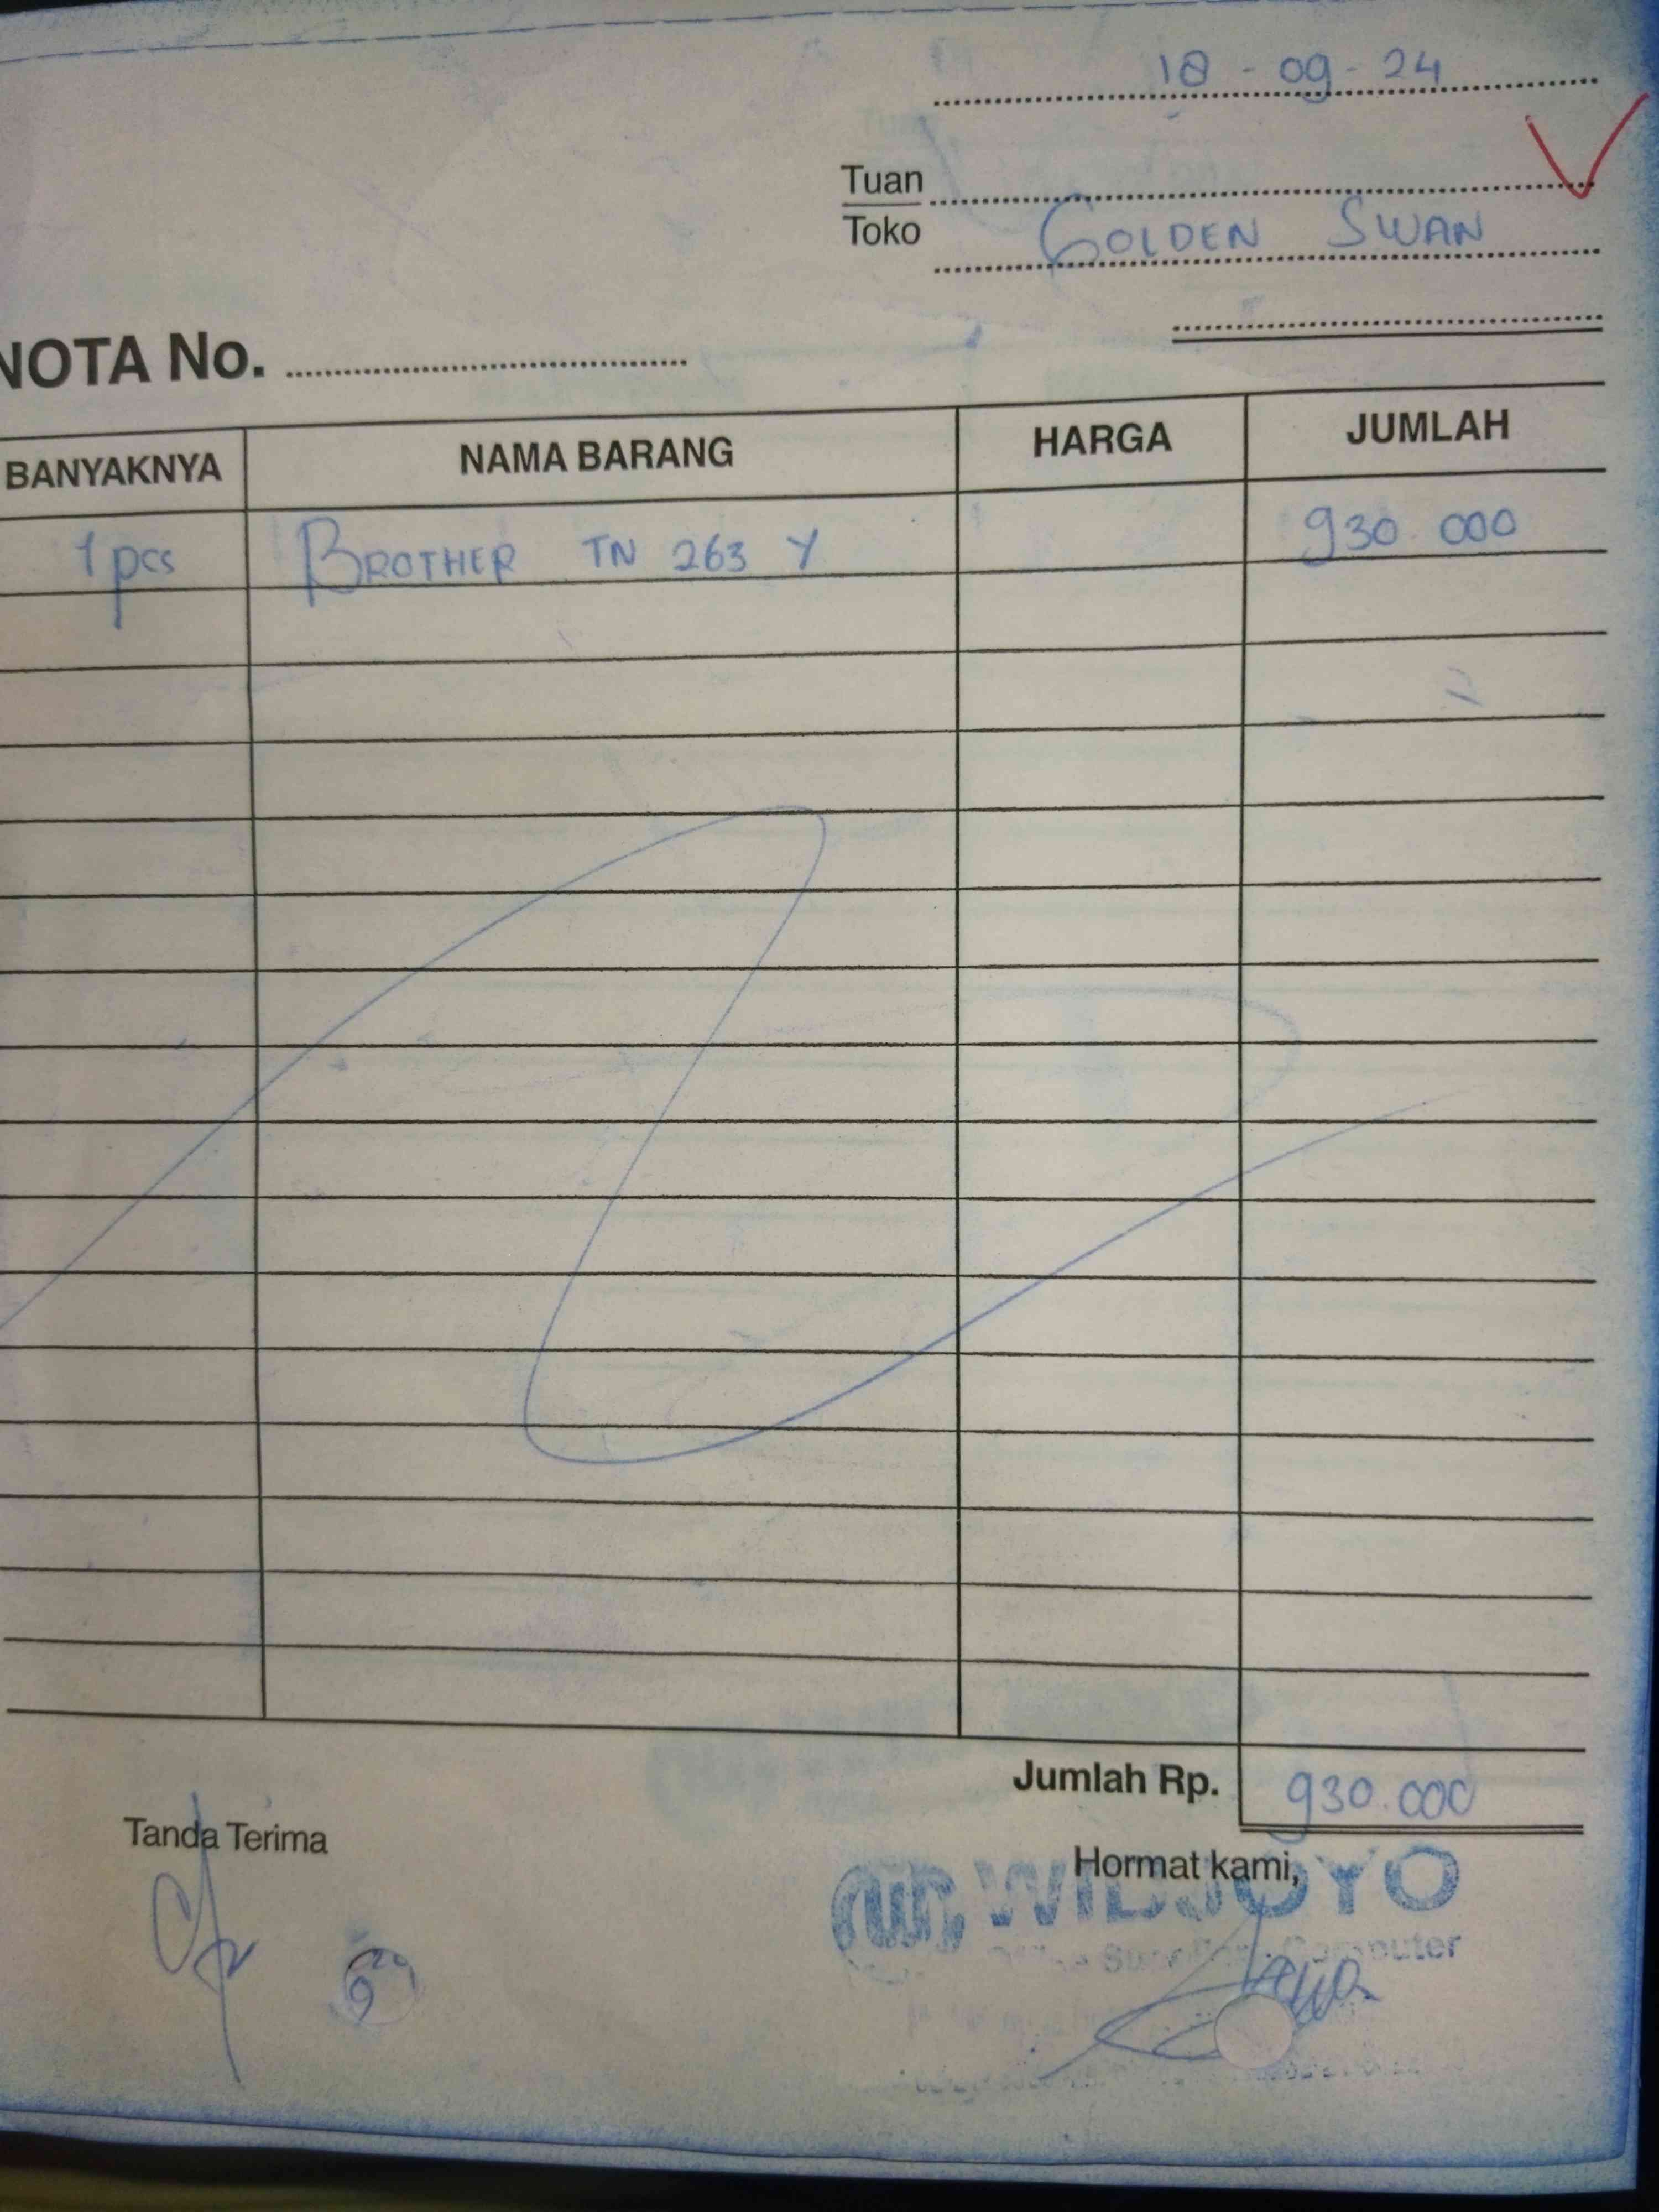 18 - 09 - 24
Tuan
Toko GOLDEN SWAN
NOTA No.
BANYAKNYA NAMA BARANG HARGA JUMLAH
1 pcs BROTHER TN 263 Y 930 000
Jumlah Rp. 930.000
Tanda Terima Hormat kami,
WIDJOYO
Computer